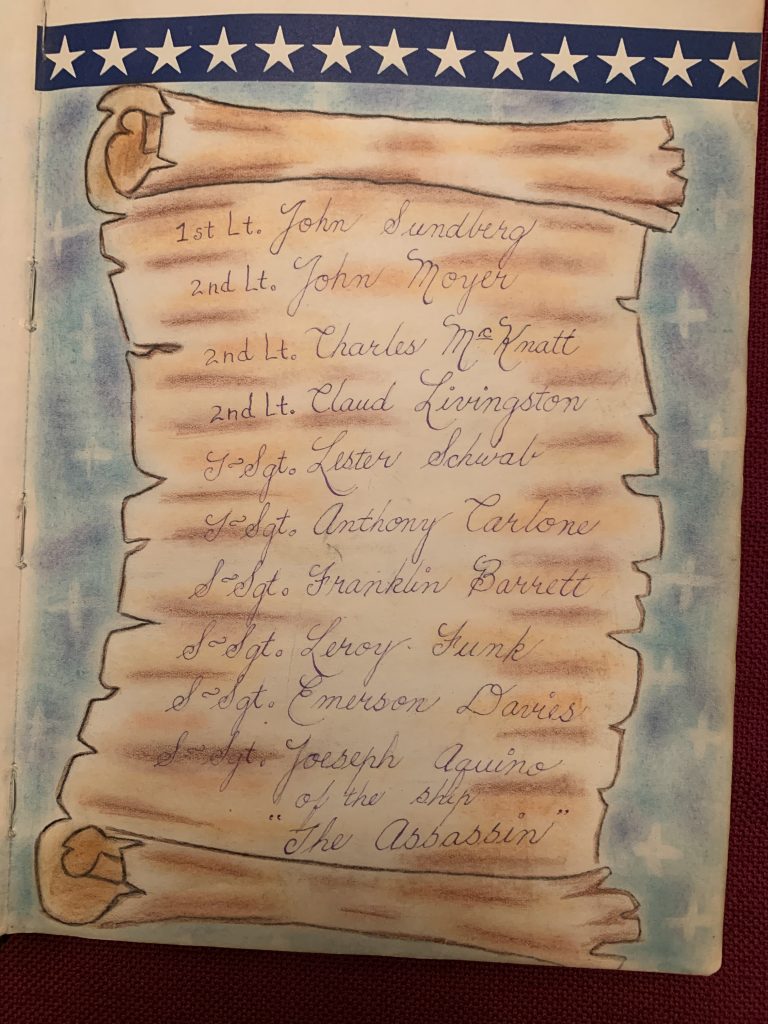 1st Lt. John Sundberg
2nd Lt. John Moyer
2nd Lt. Charles McKnatt
2nd Lt. Claud Livingston
T-Sgt. Lester Schwab
T-Sgt. Anthony Carlone
S-Sgt. Franklin Barrett
S-Sgt. Leroy Funk
S-Sgt. Emerson Davies
S-Sgt. Joeseph Aquino
of the ship
"The Assassin"